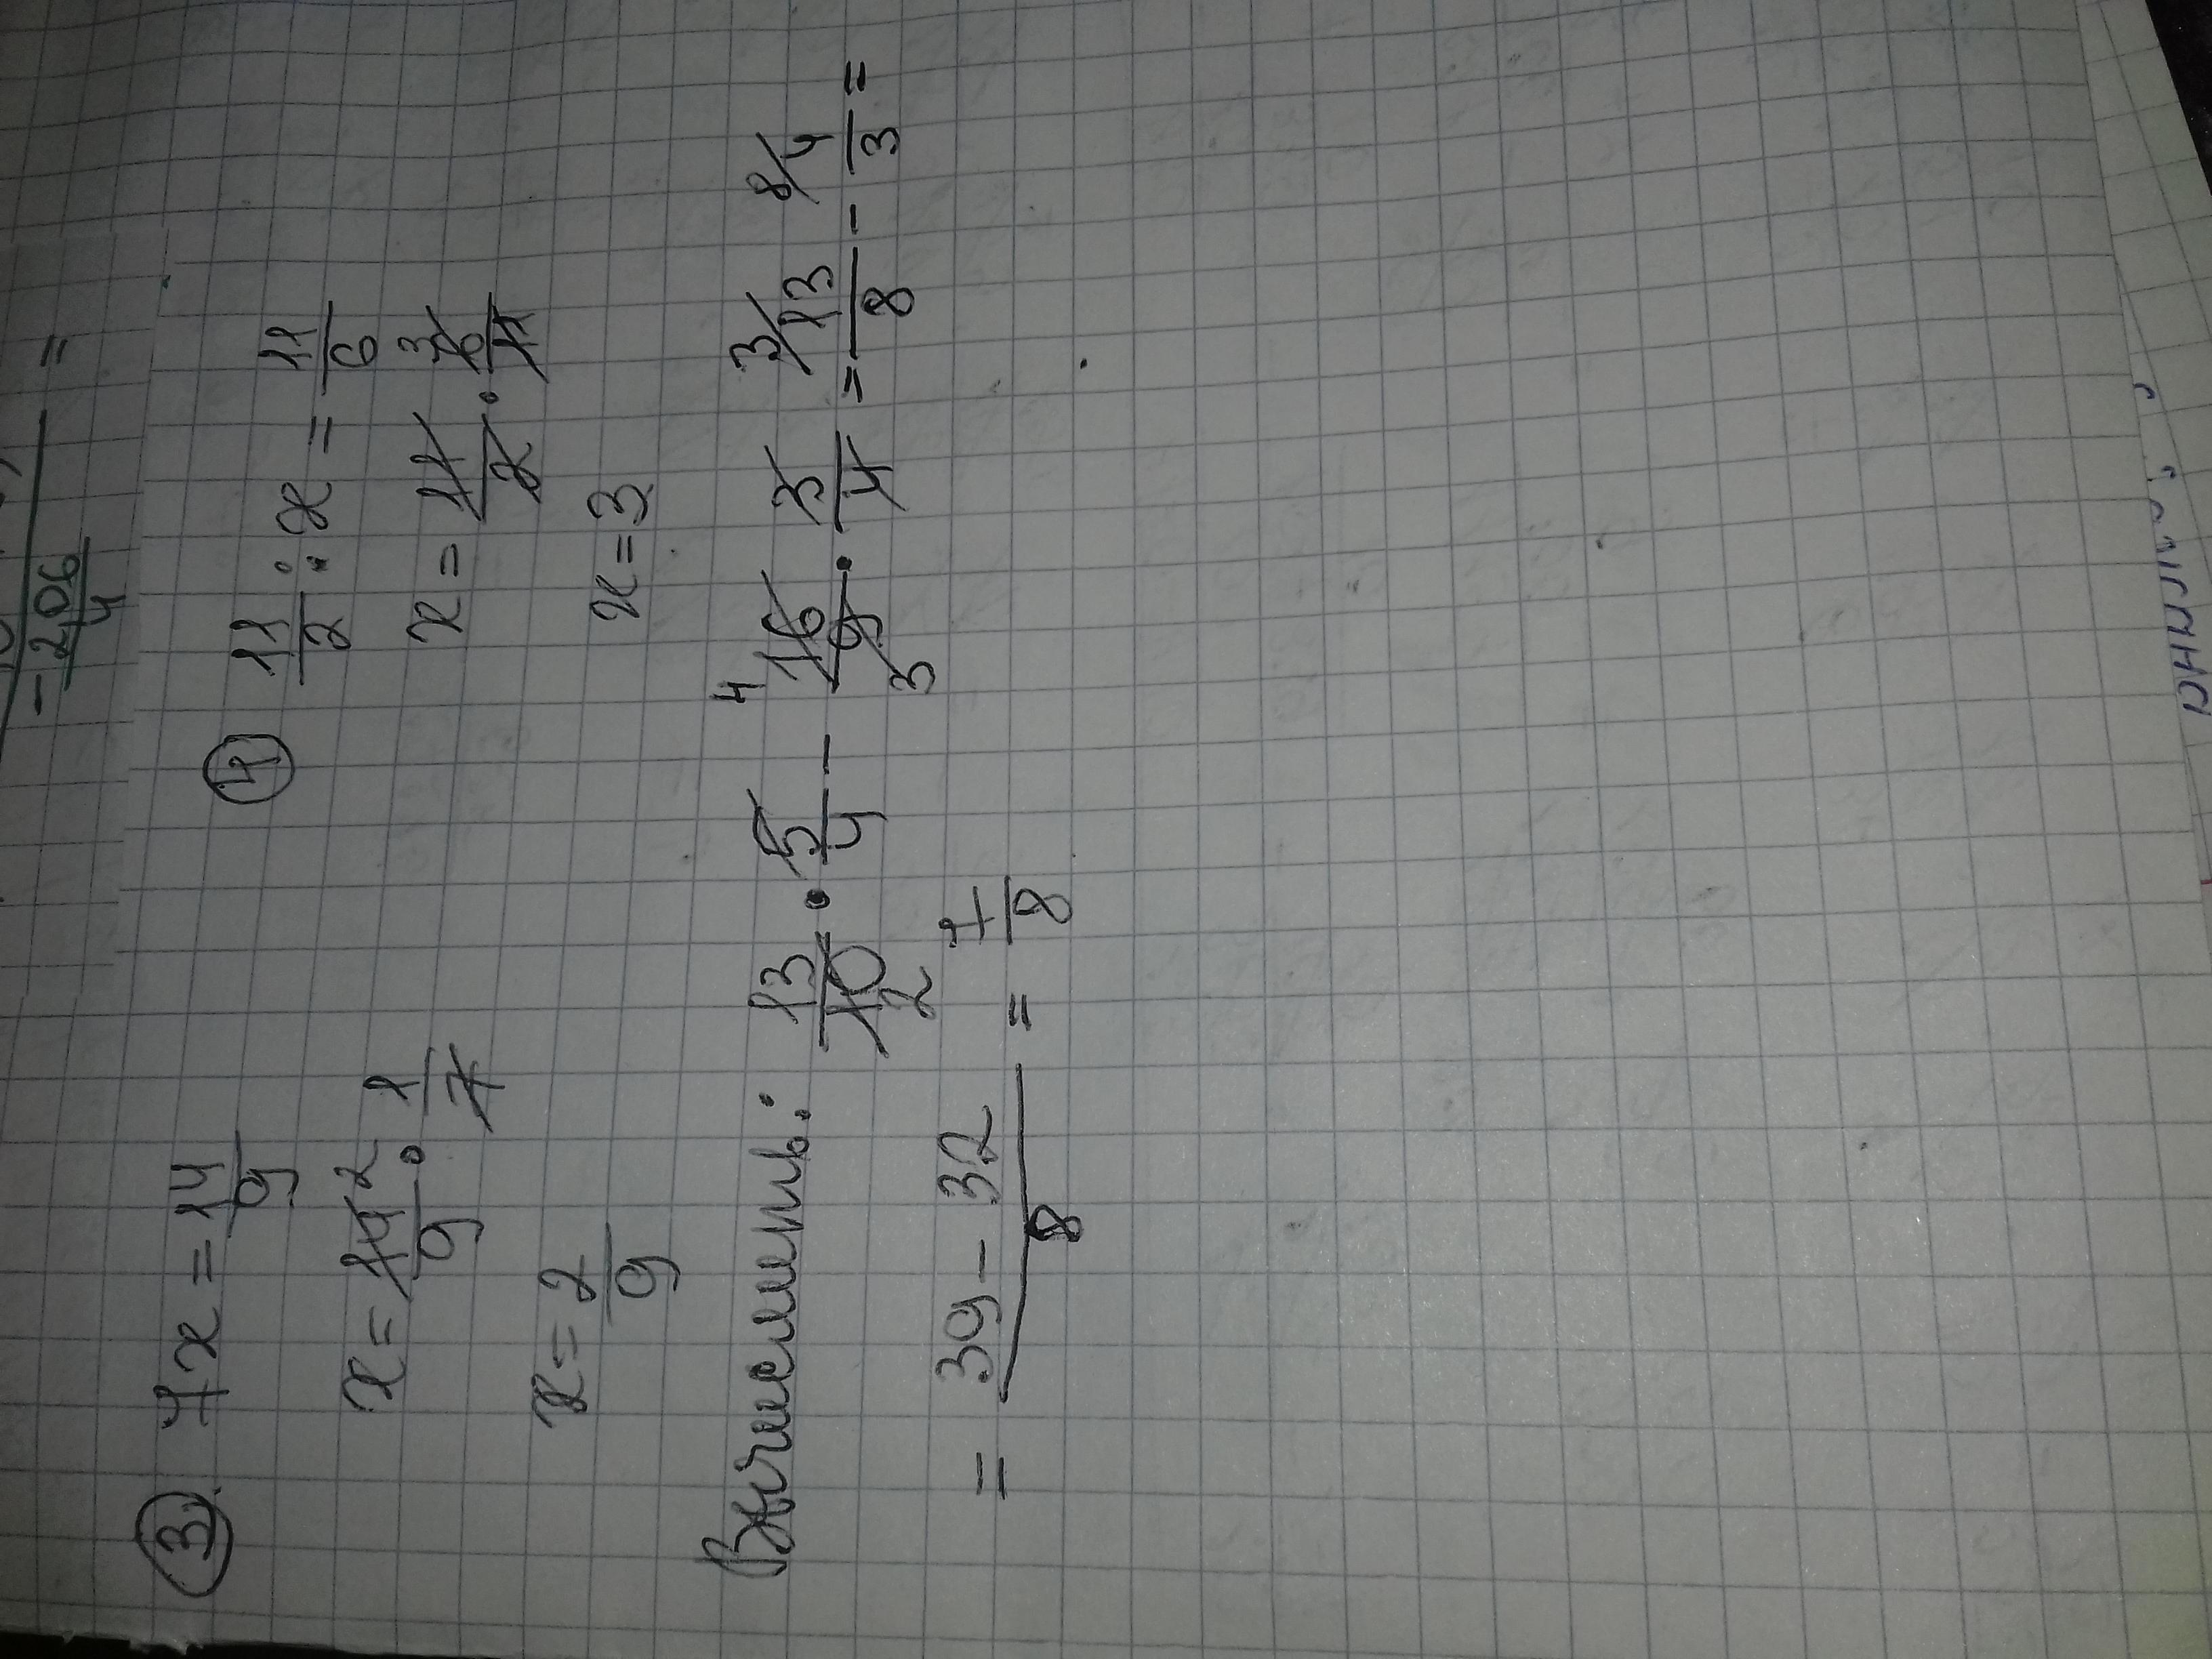 - 2,06/4 =
③ 7x = 14/9
x = 14/9 ² · 1/7
x = 2/9
④ 11/2 : x = 11/6
x = 11/2 · 6/11 ³
x = 3
Вычислить: 13/10 · 5/4 - 16/9 · 3/4 = 13/8 - 4/3 =
2 4 3 3/ 8/
= 39 - 32/8 = 7/8